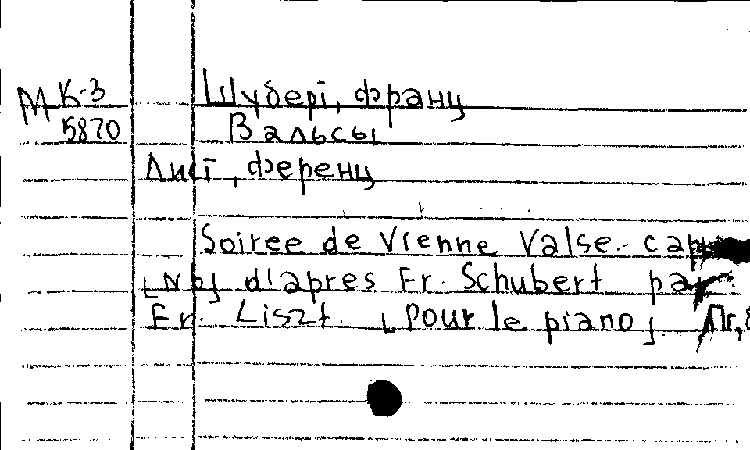 М К-3
5870
Шуберт, Франц
Вальсы
Лист, Ференц
Soiree de Vienne Valse-
[№6] d'apres Fr. Schubert par
Fr. Liszt. [pour le piano].